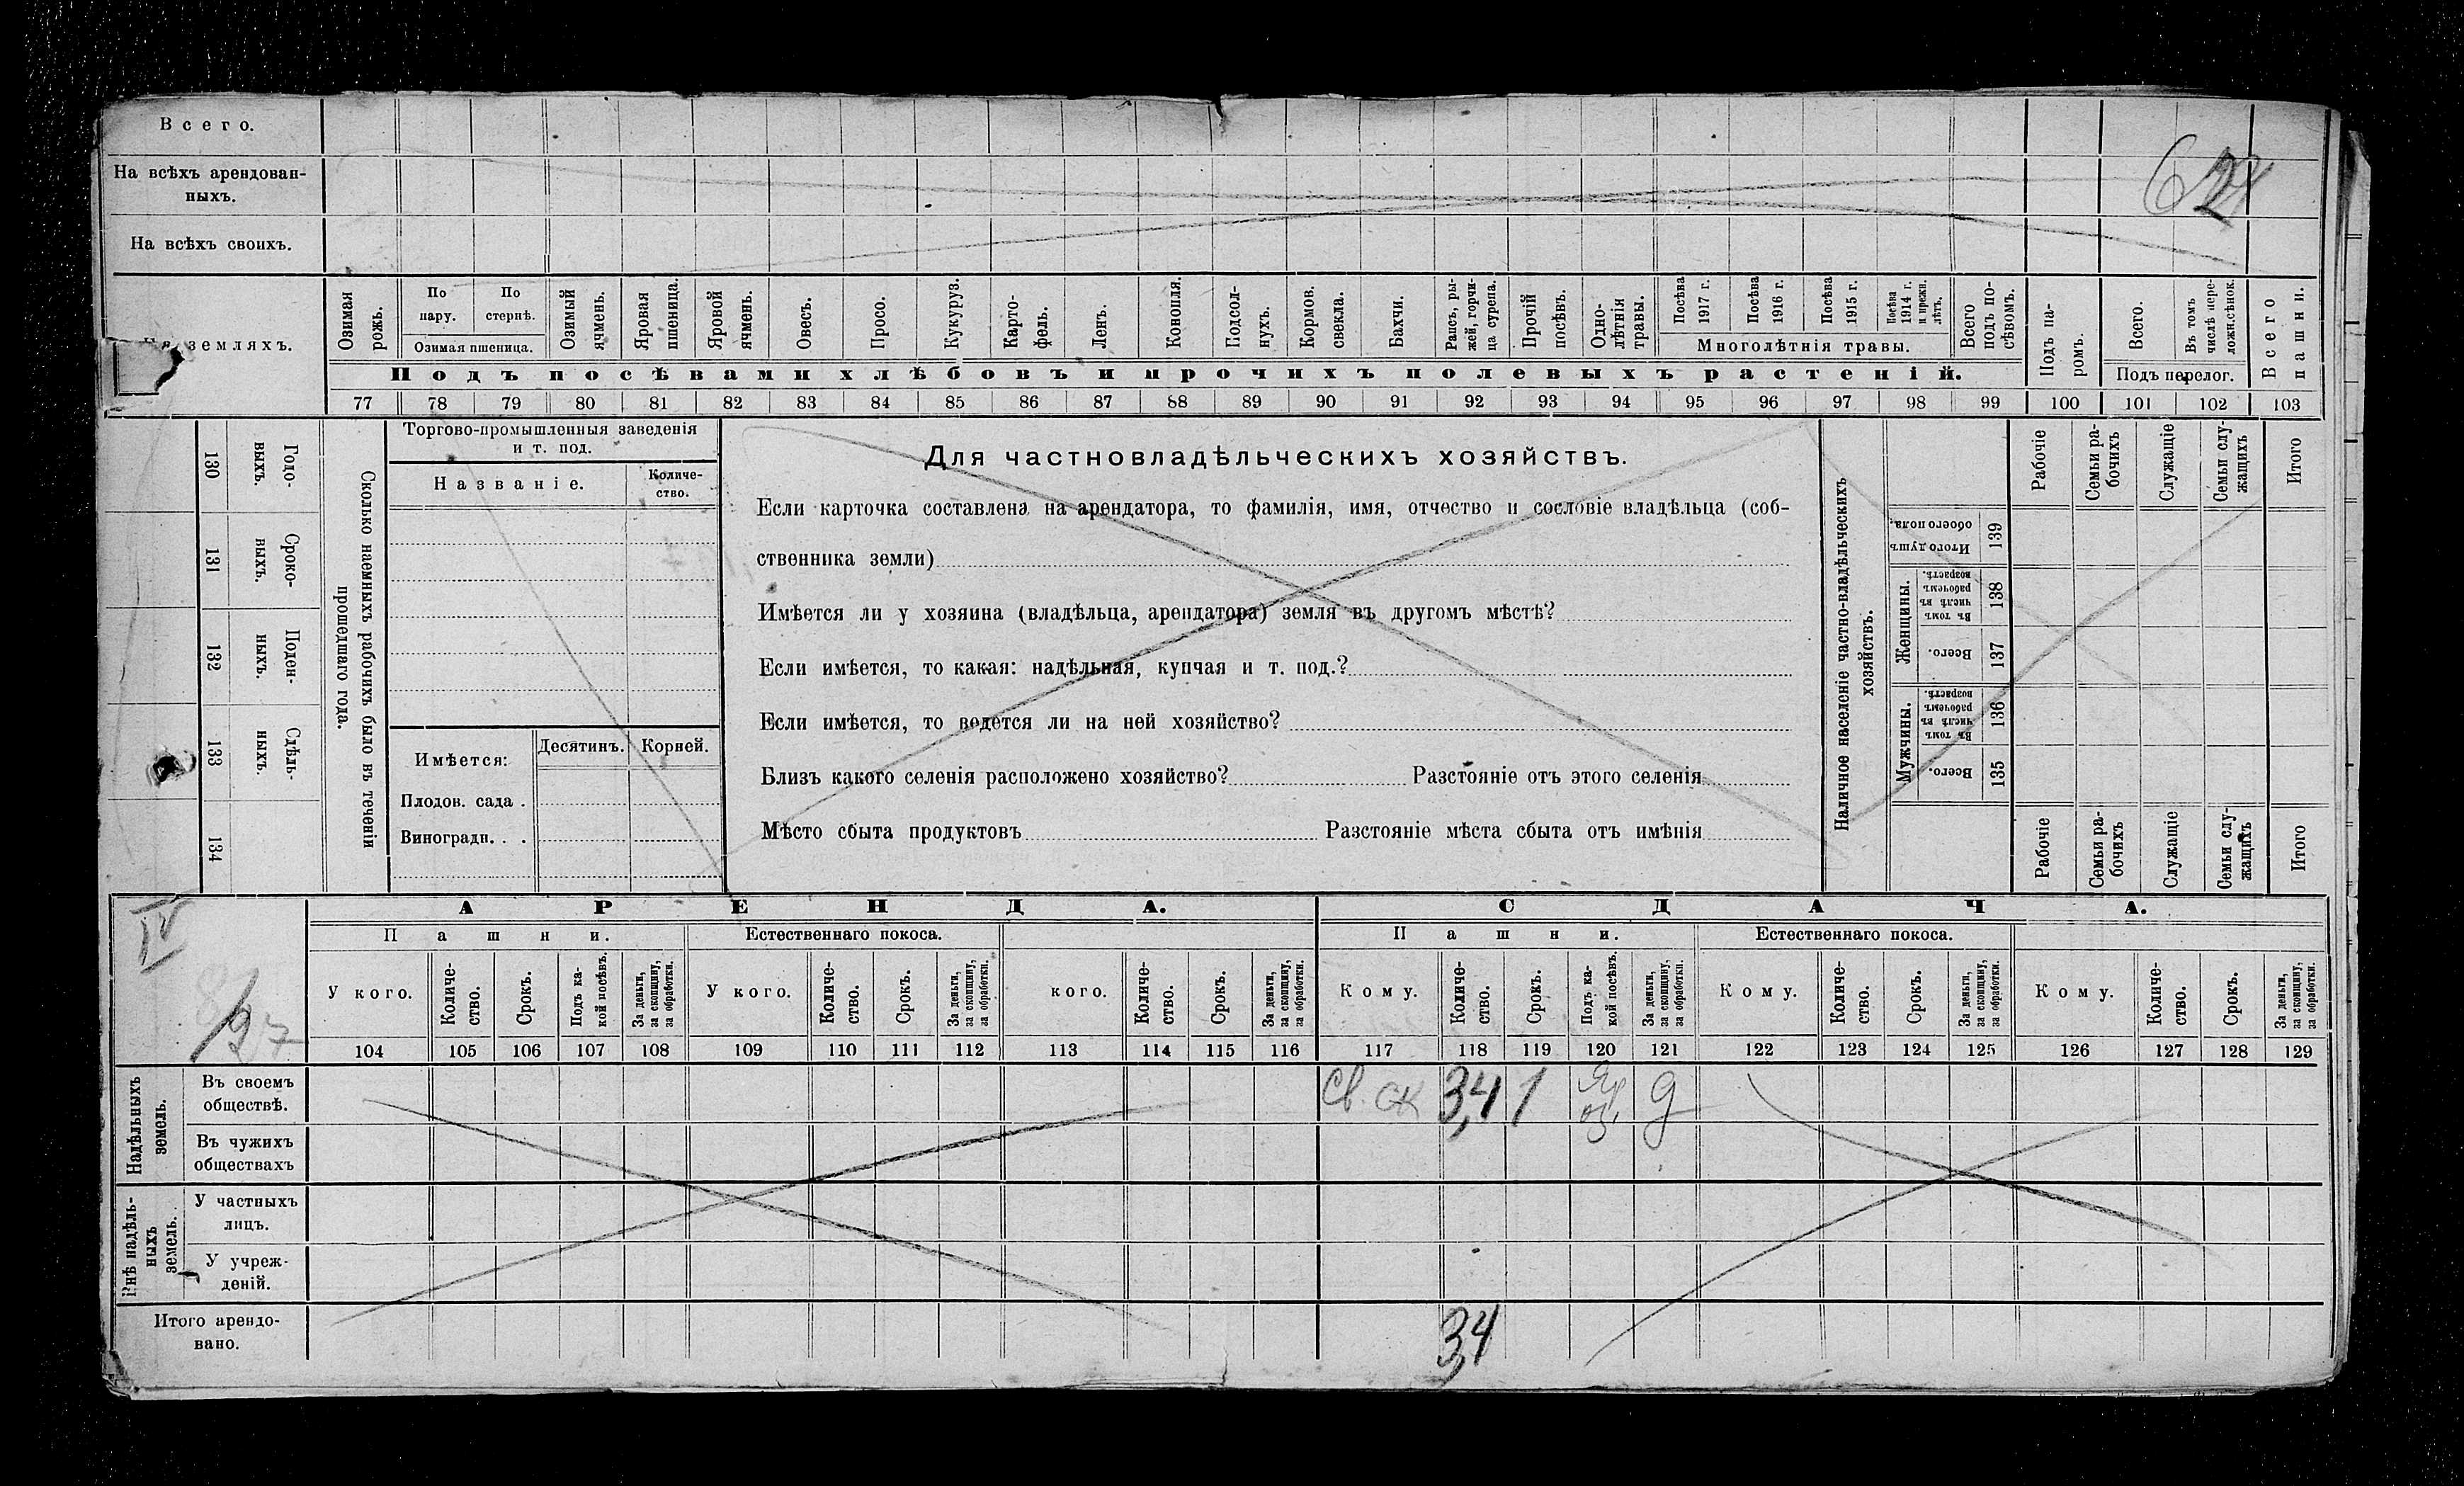 Всего.
На всѣхъ арендован-
ныхъ.
На всѣхъ своихъ.
земляхъ.
Озимая рожь.
По пару.
По стернѣ.
Озимая пшеница.
Озимый ячмень.
Яровая пшеница.
Яровой ячмень.
Овесъ.
Просо.
Кукуруз.
Карто-
фель.
Ленъ.
Конопля.
Подсол-
нухъ.
Кормов. свекла.
Бахчи.
Рапсъ, ры-
жей, горчи-
ца сурепа.
Прочій посѣвъ.
Одно-
лѣтнія травы.
Посѣва 1917 г.
Посѣва 1916 г.
Посѣва 1915 г.
Посѣва 1914 г. и прежн. лѣтъ.
Многолѣтнія травы.
Всего подъ по-
сѣвомъ.
Подъ па-
ромъ.
Всего.
Въ томъ числѣ пере-
ложн.сѣнок.
Подъ перелог.
Всего пашни.
Подъ посѣвами хлѣбовъ и прочихъ полевыхъ растеній.
77 78 79 80 81 82 83 84 85 86 87 88 89 90 91 92 93 94 95 96 97 98 99 100 101 102 103
130 Годо-
ныхъ.
131 Сроко-
ныхъ.
132 Поден-
ныхъ.
133 Сдѣль-
ныхъ.
134
Сколько наемныхъ рабочихъ было въ теченіи
прошедшаго года.
Торгово-промышленныя заведенія
и т. под.
Названіе.
Количе-
ство.
Имѣется:
Десятинъ.
Корней.
Плодов. сада .
Виноградн. . .
Для частновладѣльческихъ хозяйствъ.
Если карточка составлена на арендатора, то фамилія, имя, отчество и сословіе владѣльца (соб-
ственника земли)
Имѣется ли у хозяина (владѣльца, арендатора) земля въ другомъ мѣстѣ?
Если имѣется, то какая: надѣльная, купчая и т. под.?
Если имѣется, то ведется ли на ней хозяйство?
Близъ какого селенія расположено хозяйство? Разстояніе отъ этого селенія
Мѣсто сбыта продуктовъ Разстояніе мѣста сбыта отъ имѣнія
Наличное населеніе частно-владѣльческихъ
хозяйствъ.
Рабочіе
Семьи ра-
бочихъ
Служащіе
Семьи слу-
жащихъ
Итого
Итого душъ обоего пола. 139
Женщины.
Въ томъ числѣ въ рабочемъ возрастѣ. 138
Всего. 137
Мужчины.
Въ томъ числѣ въ рабочемъ возрастѣ. 136
Всего. 135
Рабочіе
Семьи ра-
бочихъ
Служащіе
Семьи слу-
жащихъ
Итого
IV
АРЕНДА.
СДАЧА.
Пашни.
Естественнаго покоса.
Пашни.
Естественнаго покоса.
У кого.
Количе-
ство.
Срокъ.
Подъ ка-
кой посѣвъ.
За деньги, за скопщину, за обработки.
У кого.
Количе-
ство.
Срокъ.
За деньги, за скопщину, за обработки.
кого.
Количе-
ство.
Срокъ.
За деньги, за скопщину, за обработки.
Кому.
Количе-
ство.
Срокъ.
Подъ ка-
кой посѣвъ.
За деньги, за скопщину, за обработки.
Кому.
Количе-
ство.
Срокъ.
За деньги, за скопщину, за обработки.
Кому.
Количе-
ство.
Срокъ.
За деньги, за скопщину, за обработки.
104 105 106 107 108 109 110 111 112 113 114 115 116 117 118 119 120 121 122 123 124 125 126 127 128 129
Надѣльныхъ земель.
Въ своемъ
обществѣ.
3,4 1
Въ чужихъ
обществахъ
надѣль-
ныхъ земель.
У частныхъ
лицъ.
У учреж-
деній.
Итого арендо-
вано.
3,4